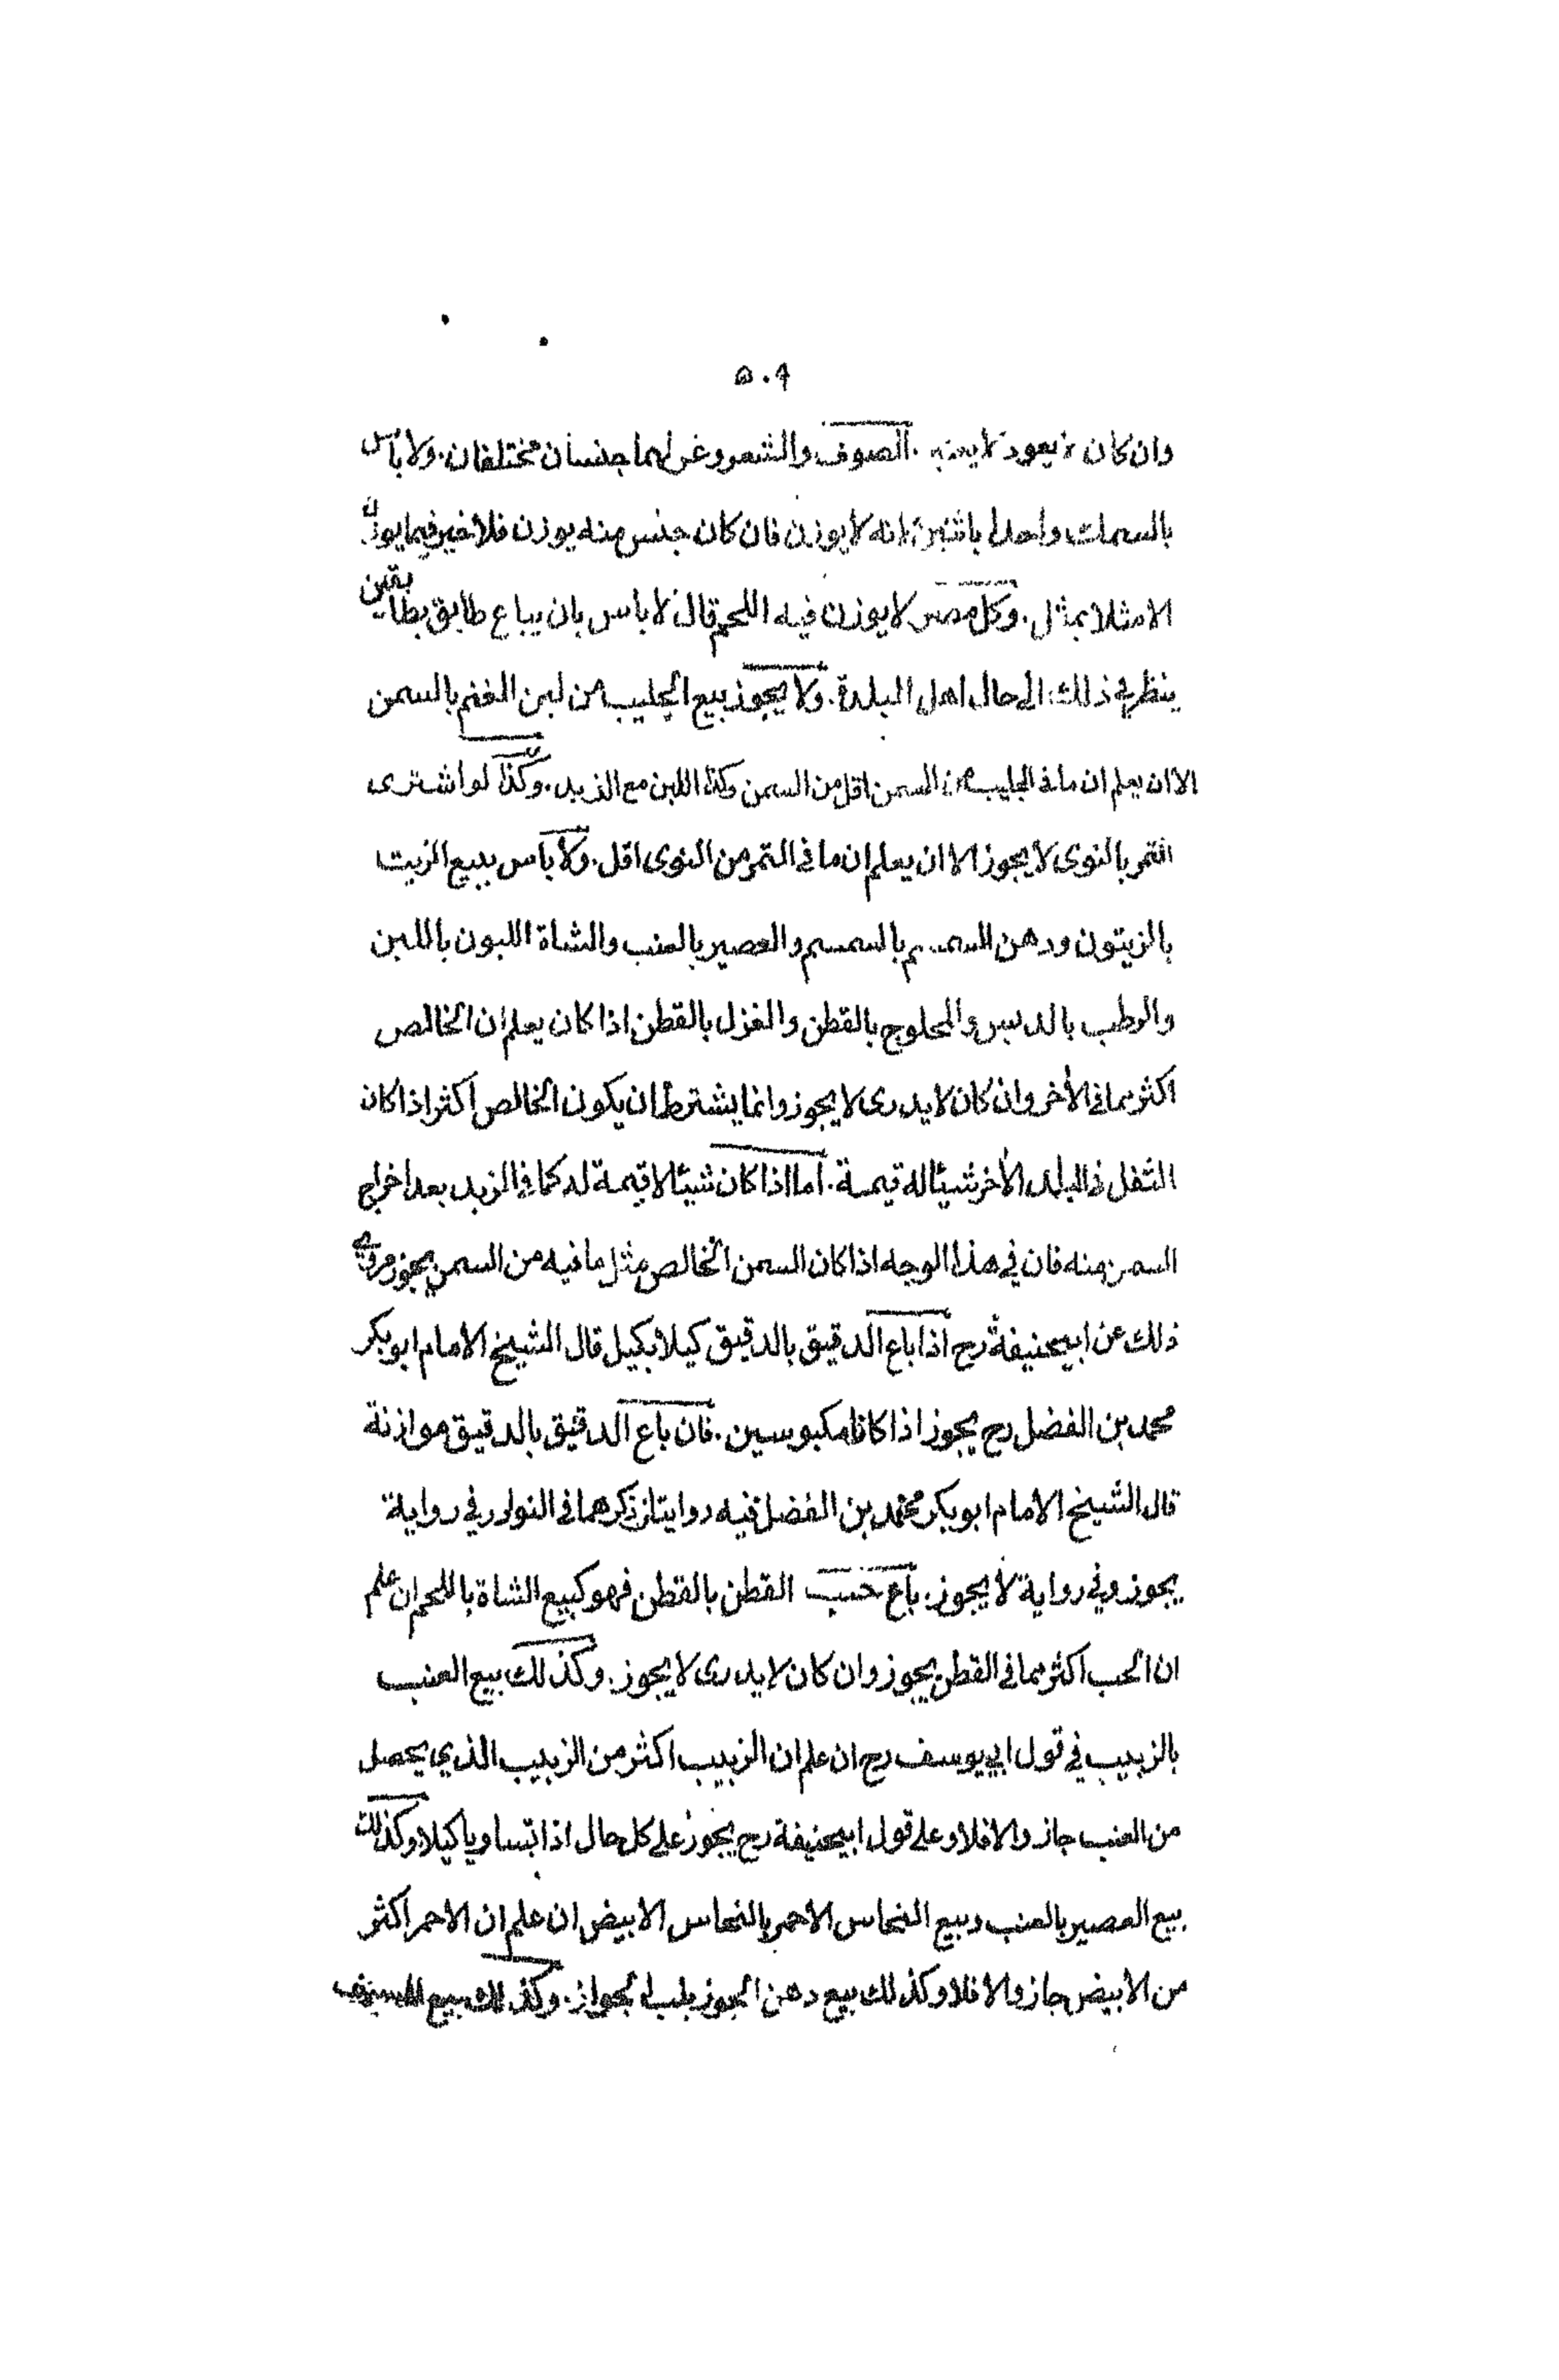 ٥٠٩
وان كان لا يعود لا يعتبر . الصوف والشعر وغزلهما جنسان مختلفان . ولا باس
بالسمك واحدا باثنين لانه لا يوزن فان كان جنس منه يوزن فلا خير فيما يوزن
الا مثلا بمثل . وكل مصر لا يوزن فيه اللحم قال لا باس بان يباع طابق بطابقين
ينظر في ذلك الى حال اهل البلدة . ولا يجوز بيع الحليب من لبن الغنم بالسمن
الا ان يعلم ان ما في الحليب من السمن اقل من السمن وكذا اللبن مع الزبد . وكذا لو اشترى
التمر بالنوى لا يجوز الا ان يعلم ان ما في التمر من النوى اقل . ولا باس ببيع الزيت
بالزيتون ودهن السمسم بالسمسم والعصير بالعنب والشاة اللبون باللبن
والرطب بالدبس والمحلوج بالقطن والغزل بالقطن اذا كان يعلم ان الخالص
اكثر مما في الأخر وان كان لا يدرى لا يجوز وانما يشترط ان يكون الخالص اكثر اذا كان
الثفل في البدل الأخر شيئا له قيمة . اما اذا كان شيئا لا قيمة له كما في الزبد بعد اخراج
السمن منه فان في هذا الوجه اذا كان السمن الخالص مثل ما فيه من السمن يجوز مروي
ذلك عن ابيحنيفة رح اذا باع الدقيق بالدقيق كيلا بكيل قال الشيخ الامام ابو بكر
محمد بن الفضل رح يجوز اذا كانا مكبوسين . فان باع الدقيق بالدقيق موازنة
قال الشيخ الامام ابو بكر محمد بن الفضل فيه روايتان ذكرهما في النوادر في رواية
يجوز وفي رواية لا يجوز . باع حب القطن بالقطن فهو كبيع الشاة باللحم ان علم
ان الحب اكثر مما في القطن يجوز وان كان لا يدرى لا يجوز . وكذلك بيع العنب
بالزبيب في قول ابي يوسف رح ان علم ان الزبيب اكثر من الزبيب الذي يحصل
من العنب جاز والا فلا وعلى قول ابيحنيفة رح يجوز على كل حال اذا تساويا كيلا وكذلك
بيع العصير بالعنب وبيع النحاس الأحمر بالنحاس الابيض ان علم ان الاحمر اكثر
من الابيض جاز والا فلا وكذلك بيع دهن الجوز بلب الجواز . وكذلك بيع